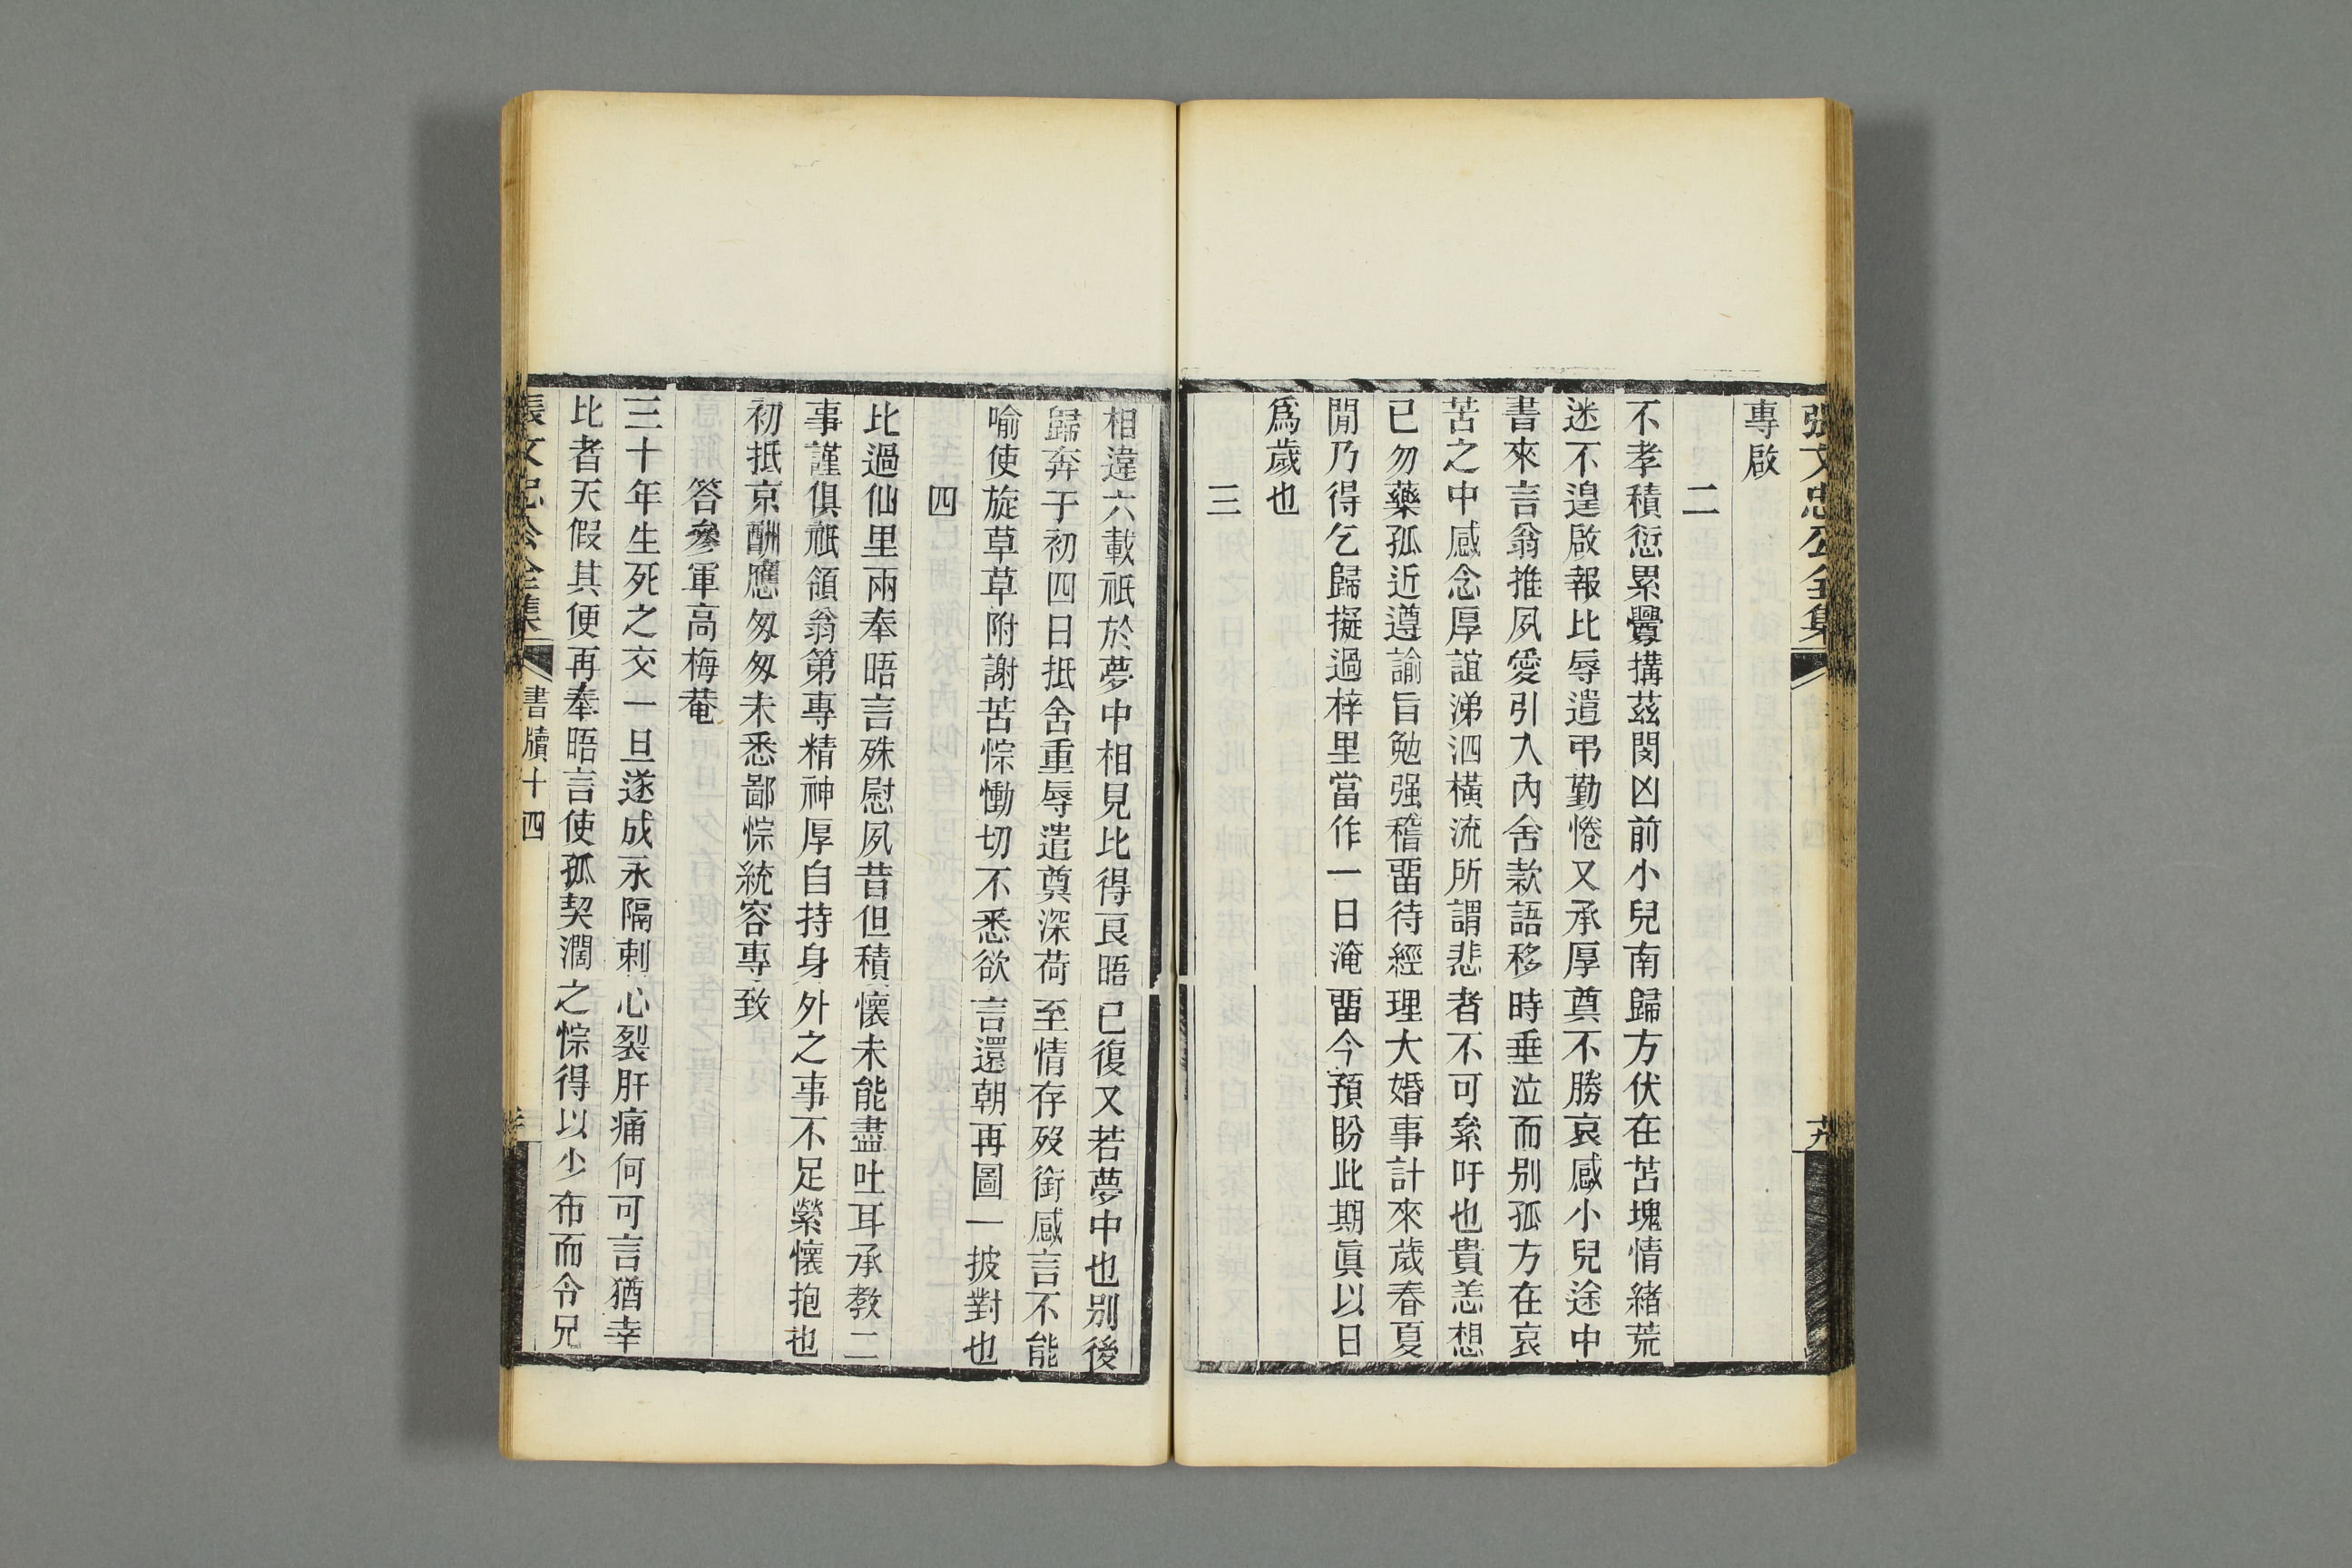 張文忠公全集
專啟
二
不孝積愆累釁搆茲閔凶前小兒南歸方伏在苫塊情緒荒
迷不遑啟報比辱遣弔勤惓又承厚奠不勝哀感小兒途中
書來言翁推夙愛引入內舍款語移時垂泣而別孤方在哀
苦之中感念厚誼涕泗橫流所謂悲者不可絫吁也貴恙想
已勿藥孤近遵諭旨勉强稽畱待經理大婚事計來歲春夏
閒乃得乞歸擬過梓里當作一日淹畱今預盼此期眞以日
爲歲也
三
相違六載祇於夢中相見比得良晤已復又若夢中也別後
歸奔于初四日抵舍重辱遣奠深荷至情存歿銜感言不能
喻使旋草草附謝苦悰慟切不悉欲言還朝再圖一披對也
四
比過仙里兩奉晤言殊慰夙昔但積懷未能盡吐耳承教二
事謹俱祇領翁第專精神厚自持身外之事不足縈懷抱也
初抵京酬應匆匆未悉鄙悰統容專致
答參軍高梅菴
三十年生死之交一旦遂成永隔刺心裂肝痛何可言猶幸
比者天假其便再奉晤言使孤契濶之悰得以少布而令兄
張文忠公全集 書牘十四